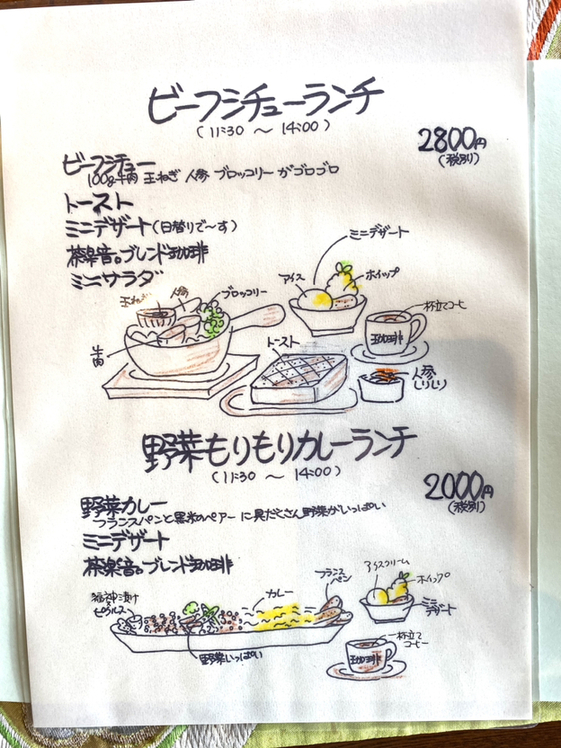 ビーフシチューランチ
(11:30 〜 14:00)
2800円
(税別)
ビーフシチュー
100g牛肉 玉ねぎ 人参 ブロッコリー がゴロゴロ
トースト
ミニデザート(日替りで〜す)
茶楽音。ブレンド珈琲
ミニサラダ
ミニデザート
アイス
ホイップ
玉ねぎ
人参
ブロッコリー
一杯立てコーヒ
珈琲
牛肉
トースト
人参
しりしり
野菜もりもりカレーランチ
(11:30 〜 14:00)
2000円
(税別)
野菜カレー
フランスパンと黒米のペアー に具だくさん野菜がいっぱい
ミニデザート
茶楽音。ブレンド珈琲
アイスクリーム
ホイップ
フランス
パン
カレー
福神漬け
ピクルス
ミニ
デザート
野菜いっぱい
一杯立て
コーヒー
珈琲